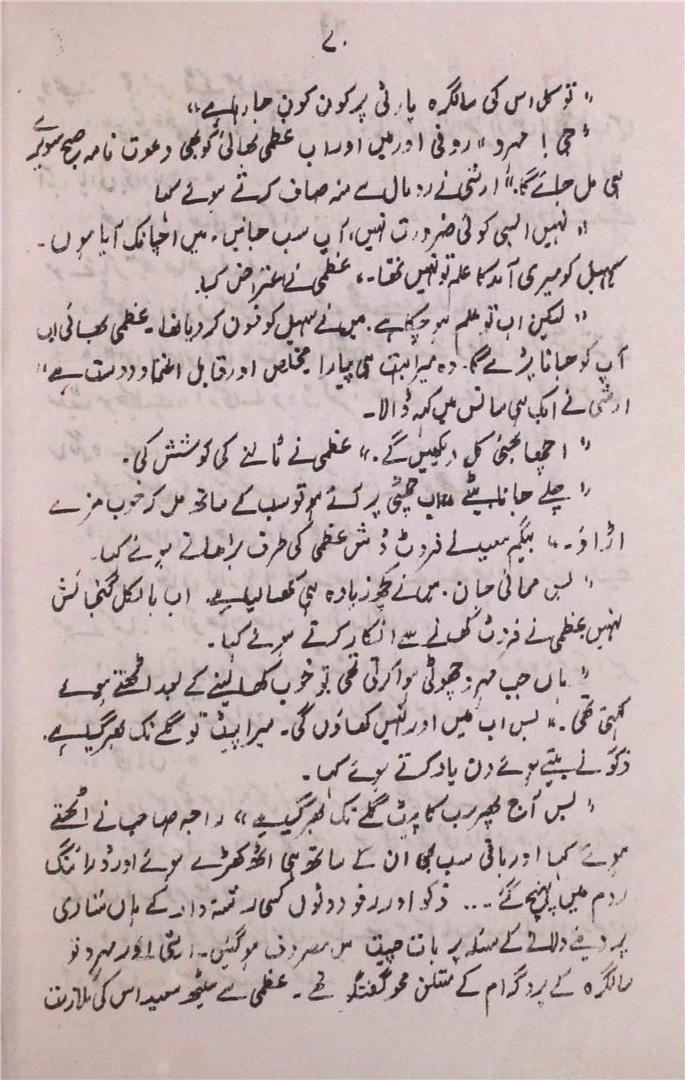 ۷۰
" تو کل اس کی سالگرہ پارٹی پر کون کون جا رہا ہے "
" جی ! مہرو " روفی اور میں اور اب عظمی بھائی کو بھی دعوت نامہ صبح سویرے
ہی مل جائے گا ۔ " ارشی نے رومال سے منہ صاف کرتے ہوئے کہا
" نہیں ایسی کوئی ضرورت نہیں، آپ سب جائیں ۔ میں اچانک آیا ہوں ۔
سہیل کو میری آمد کا علم تو نہیں تھا ۔ " عظمی نے اعتراض کیا ۔
" لیکن اب تو علم ہو چکا ہے ۔ میں نے سہیل کو فون کر دیا تھا ۔ عظمی بھائی اب
آپ کو جانا پڑے گا ۔ وہ میرا بہت ہی پیارا مخلص اور قابل اعتماد دوست ہے "
ارشی نے ایک ہی سانس میں کہہ ڈالا ۔
" اچھا بھئی کل دیکھیں گے ۔ " عظمی نے ٹالنے کی کوشش کی ۔
" چلے جانا بیٹے اب چھٹی پر آئے ہو تو سب کے ساتھ مل کر خوب مزے
اڑاؤ ۔ " بیگم سعید نے فروٹ ڈش عظمی کی طرف بڑھاتے ہوئے کہا ۔
" بس ممانی جان ۔ میں نے کچھ زیادہ ہی کھا لیا ہے ۔ اب بالکل گنجائش
نہیں عظمی نے فروٹ کھانے سے انکار کرتے ہوئے کہا ۔
" ہاں جب مہرو چھوٹی ہوا کرتی تھی تو خوب کھا لینے کے بعد اٹھتے ہوئے
کہتی تھی ۔ " بس اب میں اور نہیں کھاؤں گی ۔ میرا پیٹ تو گلے تک بھر گیا ہے ۔
ذکو نے بیتے ہوئے دن یاد کرتے ہوئے کہا ۔
" بس آج پھر سب کا پیٹ گلے تک بھر گیا ہے " راجہ صاحب نے اٹھتے
ہوئے کہا اور باقی سب بھی ان کے ساتھ ہی اٹھ کھڑے ہوئے اور ڈرائنگ
روم میں پہنچ گئے ... ذکو اور رفو دونوں کسی رشتہ دار کے ہاں شادی
پر دینے دلانے کے مسئلہ پر بات چیت میں مصروف ہو گئیں ۔ ارشی اور مہرو تو
سالگرہ کے پروگرام کے متعلق محو گفتگو تھے ۔ عظمی سے سیٹھ سعید اس کی ملازمت